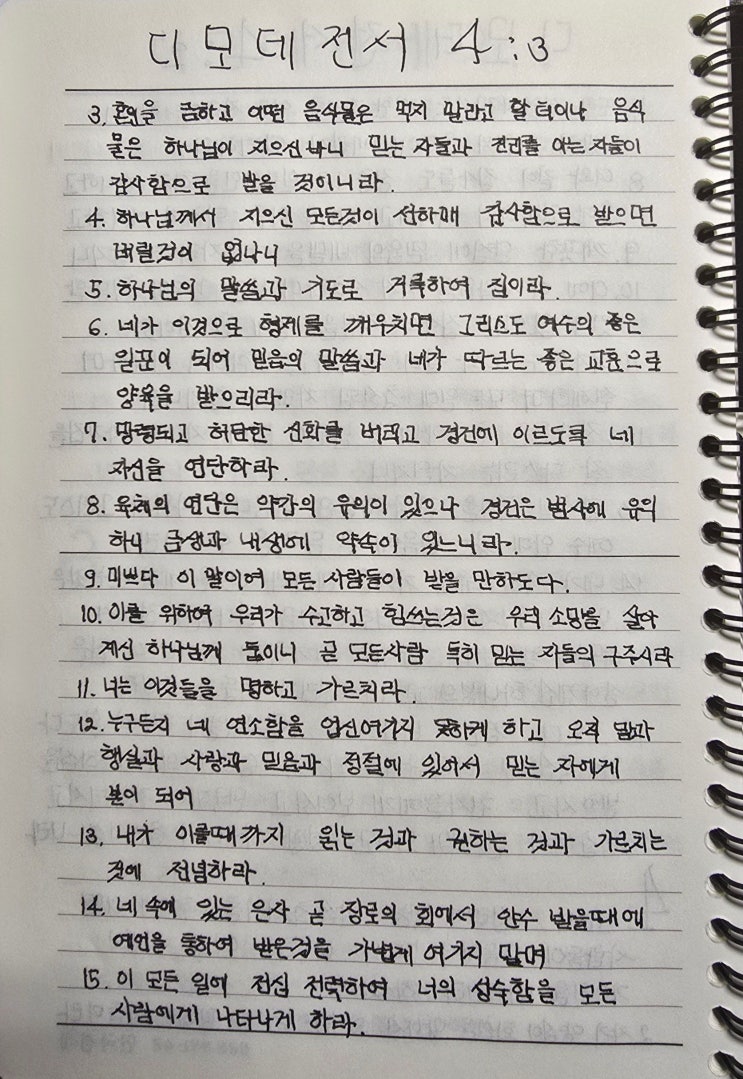 디모데전서 4:3
3. 혼인을 금하고 어떤 음식물은 먹지 말라고 할 터이나 음식
물은 하나님이 지으신 바니 믿는 자들과 진리를 아는 자들이
감사함으로 받을 것이니라.
4. 하나님께서 지으신 모든것이 선하매 감사함으로 받으면
버릴것이 없나니
5. 하나님의 말씀과 기도로 거룩하여 짐이라.
6. 네가 이것으로 형제를 깨우치면 그리스도 예수의 좋은
일꾼이 되어 믿음의 말씀과 네가 따르는 좋은 교훈으로
양육을 받으리라.
7. 망령되고 허탄한 신화를 버리고 경건에 이르도록 네
자신을 연단하라.
8. 육체의 연단은 약간의 유익이 있으나 경건은 범사에 유익
하니 금생과 내생에 약속이 있느니라.
9. 미쁘다 이 말이여 모든 사람들이 받을 만하도다.
10. 이를 위하여 우리가 수고하고 힘쓰는것은 우리 소망을 살아
계신 하나님께 둠이니 곧 모든사람 특히 믿는 자들의 구주시라
11. 너는 이것들을 명하고 가르치라.
12. 누구든지 네 연소함을 업신여기지 못하게 하고 오직 말과
행실과 사랑과 믿음과 정절에 있어서 믿는 자에게
본이 되어
13. 내가 이를때까지 읽는 것과 권하는 것과 가르치는
것에 전념하라.
14. 네 속에 있는 은사 곧 장로의 회에서 안수 받을때에
예언을 통하여 받은것을 가볍게 여기지 말며
15. 이 모든 일에 전심 전력하여 너의 성숙함을 모든
사람에게 나타나게 하라.